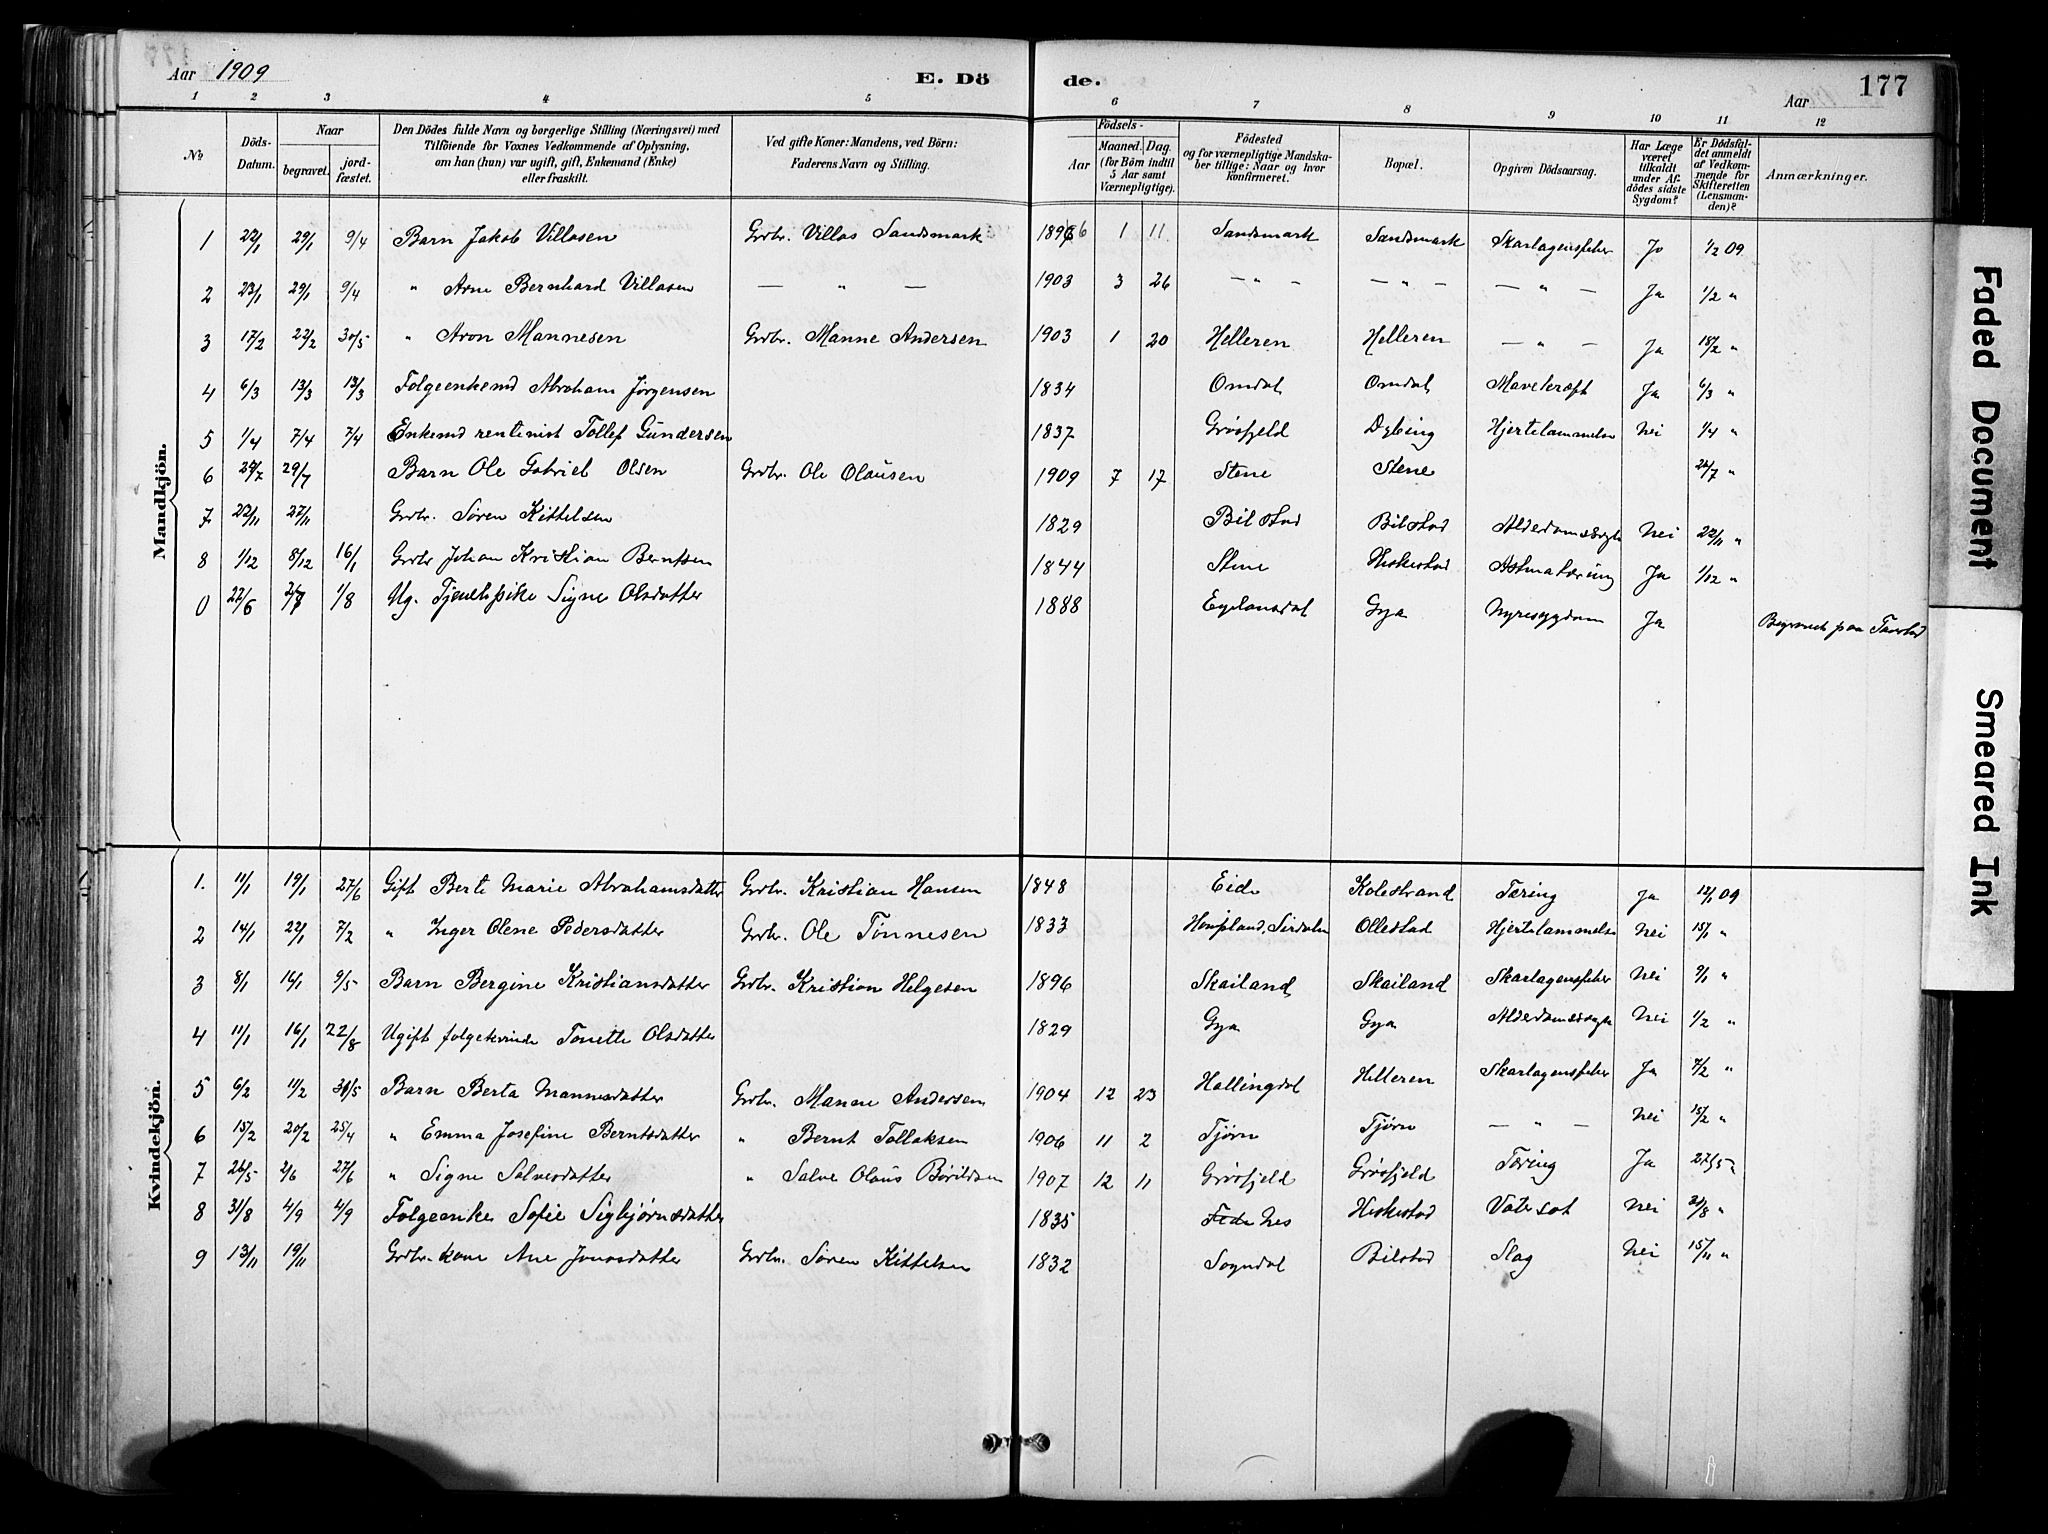 Aar 1909 E. Dö de. Aar 177
1 2 3 4 5 6 7 8 9 10 11 12
No Döds-Datum. Naar begravet. jordfæstet. Den Dödes fulde Navn og borgerlige Stilling (Næringsvei) med Tilföiende for Voxnes Vedkommende af Oplysning, om han (hun) var ugift, gift, Enkemand (Enke) eller fraskilt. Ved gifte Koner: Mandens, ved Börn: Faderens Navn og Stilling. Födsels- Aar Maaned. Dag. (for Börn indtil 5 Aar samt Værnepligtige). Födested og for værnepligtige Mandskaber tillige: Naar og hvor konfirmeret. Bopæl. Opgiven Dödsaarsag. Har Læge været tilkaldt under Afdödes sidste Sygdom? Er Dödsfaldet anmeldt af Vedkommende for Skifteretten (Lensmanden)? Anmærkninger.
Mandkjön.
1 22/1 29/1 9/4 Barn Jakob Villasen Grdbr. Villas Sandsmark 1896 1 11 Sandsmark Sandsmark Skarlagensfeber Ja 1/2 09
2 23/1 29/1 9/4 " Arne Bernhard Villasen — " — 1903 3 26 — " — — " — — " — Ja 1/2 "
3 17/2 22/2 30/5 " Aron Mannesen Grdbr. Manne Andersen 1903 1 20 Helleren Helleren — " — Ja 18/2 "
4 6/3 13/3 13/3 Folgeenkemd Abraham Jørgensen 1834 Omdal Omdal Mavekræft Ja 6/3 "
5 1/4 7/4 7/4 Enkemd rentenist Tollef Gundersen 1837 Grøsfjeld Dybing Hjertelammelse Nei 1/4 "
6 24/7 29/7 Barn Ole Gabriel Olsen Grdbr. Ole Olausen 1909 7 17 Stene Stene 26/7 "
7 22/11 27/11 Grdbr. Søren Kittelsen 1829 Bilstad Bilstad Alderdomssvagh Nei 22/11 "
8 1/12 8/12 16/1 Grdbr Johan Kristian Berntsen 1844 Stene Heskestad Astma tæring Ja 1/12 "
0 22/6 2/7 1/8 Ug. Tjenestpike Signe Olsdatter 1888 Egelandsdal Gya Nyresygdom Ja Begravet paa Taarstad
Kvindekjön.
1. 11/1 19/1 27/6 Gift Berte Marie Abrahamsdatter Grdbr. Kristian Hansen 1848 Eide Kolestrand Tæring Ja 12/1 09
2 14/1 22/1 7/2 " Inger Olene Pedersdatter Grdbr. Ole Tønnesen 1833 Hompland, Sirdalen Ollestad Hjertelammelse Nei 15/1 "
3 8/1 16/1 9/5 Barn Bergine Kristiansdatter Grdbr. Kristian Helgesen 1896 Skailand Skailand Skarlagensfeber Nei 9/1 "
4 11/1 16/1 22/8 Ugift folgekvinde Tonette Olsdatter 1829 Gya Gya Alderdomssvagh Nei 1/2 "
5 6/2 11/2 30/5 Barn Berta Mannesdatter Grdbr. Manne Andersen 1904 12 23 Hallingdal Helleren Skarlagensfeber Ja 7/2 "
6 15/2 20/2 25/4 " Emma Josefine Berntsdatter " Bernt Tollaksen 1906 11 2 Tjørn Tjørn — " — Nei 15/2 "
7 26/5 2/6 27/6 " Signe Salvesdatter " Salve Olaus Børildsen 1907 12 11 Grøsfjeld Grøsfjeld Tæring Ja 27/5 "
8 31/8 4/9 4/9 Folgeenke Sofie Sigbjørnsdatter 1835 Nes Heskestad Vatersot Nei 31/8 "
9 13/11 19/11 Grdbr. kone Ane Jonasdatter Grdbr. Søren Kittelsen 1832 Sogndal Bilstad Slag Nei 15/11 "
Faded Document
Smeared Ink